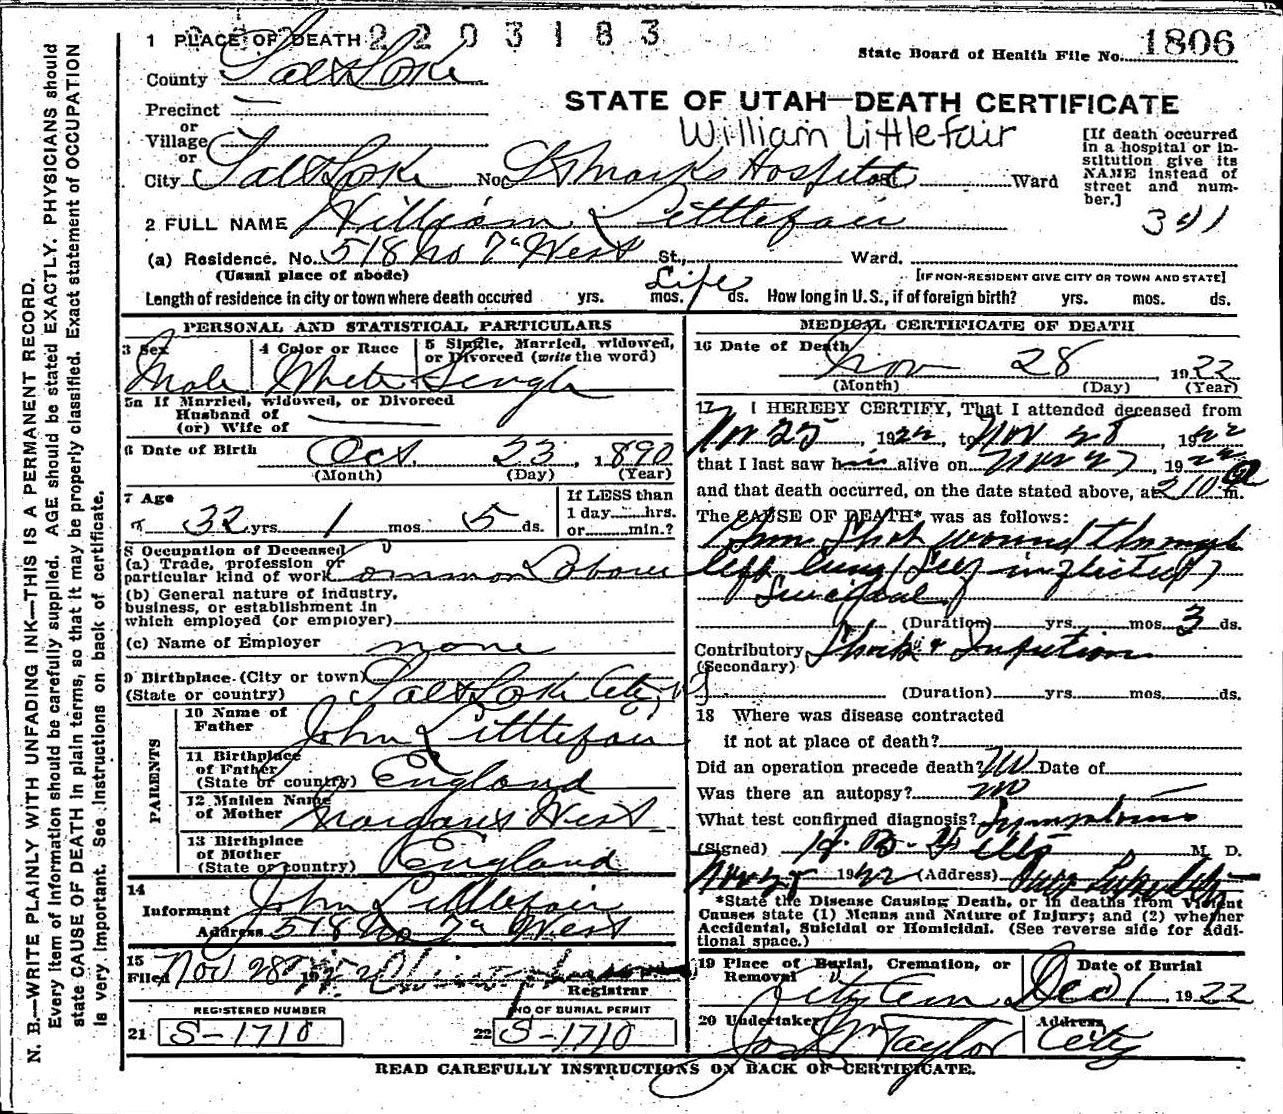 1 PLACE OF DEATH 2203183
State Board of Health File No. 1806
County Salt Lake
STATE OF UTAH—DEATH CERTIFICATE
Precinct
or
Village
or
William Littlefair
[If death occurred
in a hospital or in-
stitution give its
NAME instead of
street and num-
ber.]
City Salt Lake No. St Marks Hospital St. Ward
341
2 FULL NAME William Littlefair
(a) Residence. No. 518 No 7th West St., Ward.
(Usual place of abode)
[IF NON-RESIDENT GIVE CITY OR TOWN AND STATE]
Length of residence in city or town where death occured yrs. mos. Life ds. How long in U.S., if of foreign birth? yrs. mos. ds.
PERSONAL AND STATISTICAL PARTICULARS
3 Sex
Male
4 Color or Race
White
5 Single, Married, widowed,
or Divorced (write the word)
Single
5a If Married, widowed, or Divorced
Husband of
(or) Wife of
6 Date of Birth Oct. 23, 1890
(Month) (Day) (Year)
7 Age
32 yrs. 1 mos. 5 ds.
If LESS than
1 day hrs.
or min.?
8 Occupation of Deceased
(a) Trade, profession or
particular kind of work Common Laborer
(b) General nature of industry,
business, or establishment in
which employed (or employer)
(c) Name of Employer none
9 Birthplace (City or town)
(State or country) Salt Lake City, U
PARENTS
10 Name of
Father John Littlefair
11 Birthplace
of Father
(State or country) England
12 Maiden Name
of Mother Margaret West
13 Birthplace
of Mother
(State or country) England
14
Informant John Littlefair
Address 518 No 7th West
15
Filed Nov 28 19
Registrar
REGISTERED NUMBER
21 S-1710
NO OF BURIAL PERMIT
22 S-1710
MEDICAL CERTIFICATE OF DEATH
16 Date of Death
Nov 28 1922
(Month) (Day) (Year)
17 I HEREBY CERTIFY, That I attended deceased from
Nov 25, 1922, to Nov 28, 1922
that I last saw him alive on Nov 27, 1922
and that death occurred, on the date stated above, at 210 a m.
The CAUSE OF DEATH* was as follows:
Gun Shot wound through
left lung (Self inflicted)
Suicidal
(Duration) yrs. mos. 3 ds.
Contributory Shock & Infection
(Secondary)
(Duration) yrs. mos. ds.
18 Where was disease contracted
if not at place of death?
Did an operation precede death? No Date of
Was there an autopsy? no
What test confirmed diagnosis? Symptoms
(Signed) M. D.
Nov 28 1922 (Address)
*State the Disease Causing Death, or in deaths from Violent
Causes state (1) Means and Nature of Injury; and (2) whether
Accidental, Suicidal or Homicidal. (See reverse side for addi-
tional space.)
19 Place of Burial, Cremation, or
Removal
City Cem
Date of Burial
Dec 1 1922
20 Undertaker
Jos Wm Taylor
Address
City
READ CAREFULLY INSTRUCTIONS ON BACK OF CERTIFICATE.
N. B.—WRITE PLAINLY WITH UNFADING INK—THIS IS A PERMANENT RECORD.
Every item of information should be carefully supplied. AGE should be stated EXACTLY. PHYSICIANS should
state CAUSE OF DEATH in plain terms, so that it may be properly classified. Exact statement of OCCUPATION
is very important. See instructions on back of certificate.